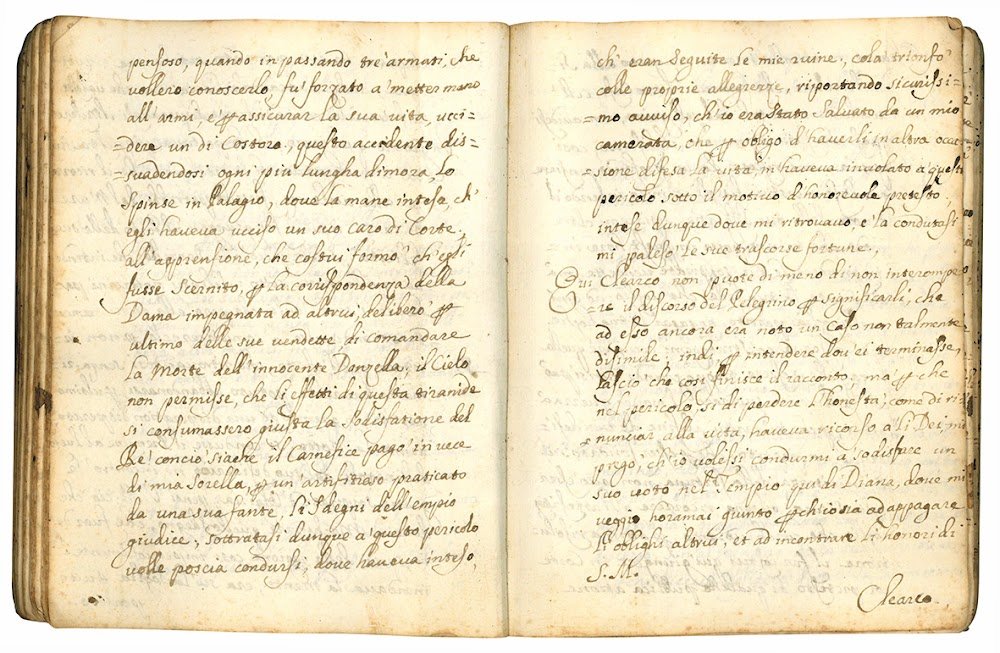 pensoso, quando in passando trè armati, che
vollero conoscerlo, fu' forzato a' metter mano
all'armi, e' per assicurar la sua vita, ucci=
=dere un di Costoro, questo accidente dis=
=suadendosi ogni piu' lungha dimora, lo
spinse in Palagio, dove la mane intese, ch'
egli haveva ucciso un suo caro di Corte,
all'apprensione, che costui formò ch'egli
fusse Scernito, per la corrispondenza della
Dama impegnata ad altrui, deliberò per
ultimo delle sue vendette di comandare
la morte dell'innocente Donzella, il Cielo
non permisse, che li effetti di questa tiranide
si consumassero giusta la sodisfatione del
Rè concio siache il Carnefice pagò in vece
di mia Sorella, per un artifitioso praticato
da una sua fante, li Sdegni dell'empio
giudice, sottratasi dunque a' questo pericolo
volle poscia condursi, dove haveva inteso,
ch'eran seguite le mie ruine, colà trionfò
colle proprie allegrezze, riportando sicurissi=
=mo avviso, ch'io era stato Salvato da un mio
camerata, che per obligo d'haverli in altra occa=
=sione difesa la vita, m'haveva involato a' questi
pericolo sotto il motivo d'honorevole pretesto,
intese dunque dove mi ritrovavo, e' la condutasi
mi palesò le sue trascorse fortune.,
Qui Clearco non puote di meno di non interompe
=re il discorso del Pelegrino per significarli, che
ad esso ancora era noto un Caso non talmente
disimile, indi per intendere dov'ei terminasse,
lasciò che così finisce il racconto, ma per che
nel pericolo, si di perdere l'honestà, come di ri=
=nunciar alla vita, haveva ricorso a' li Dei, mi
pregò, ch'io volessi condurmi a' sodisfare un
suo voto nel Tempio qui di Diana, dove mi
veggio horamai giunto per ch'io sia ad appagare
l'oblighi altrui, et ad incontrare li honori di
S. M.
Clearco